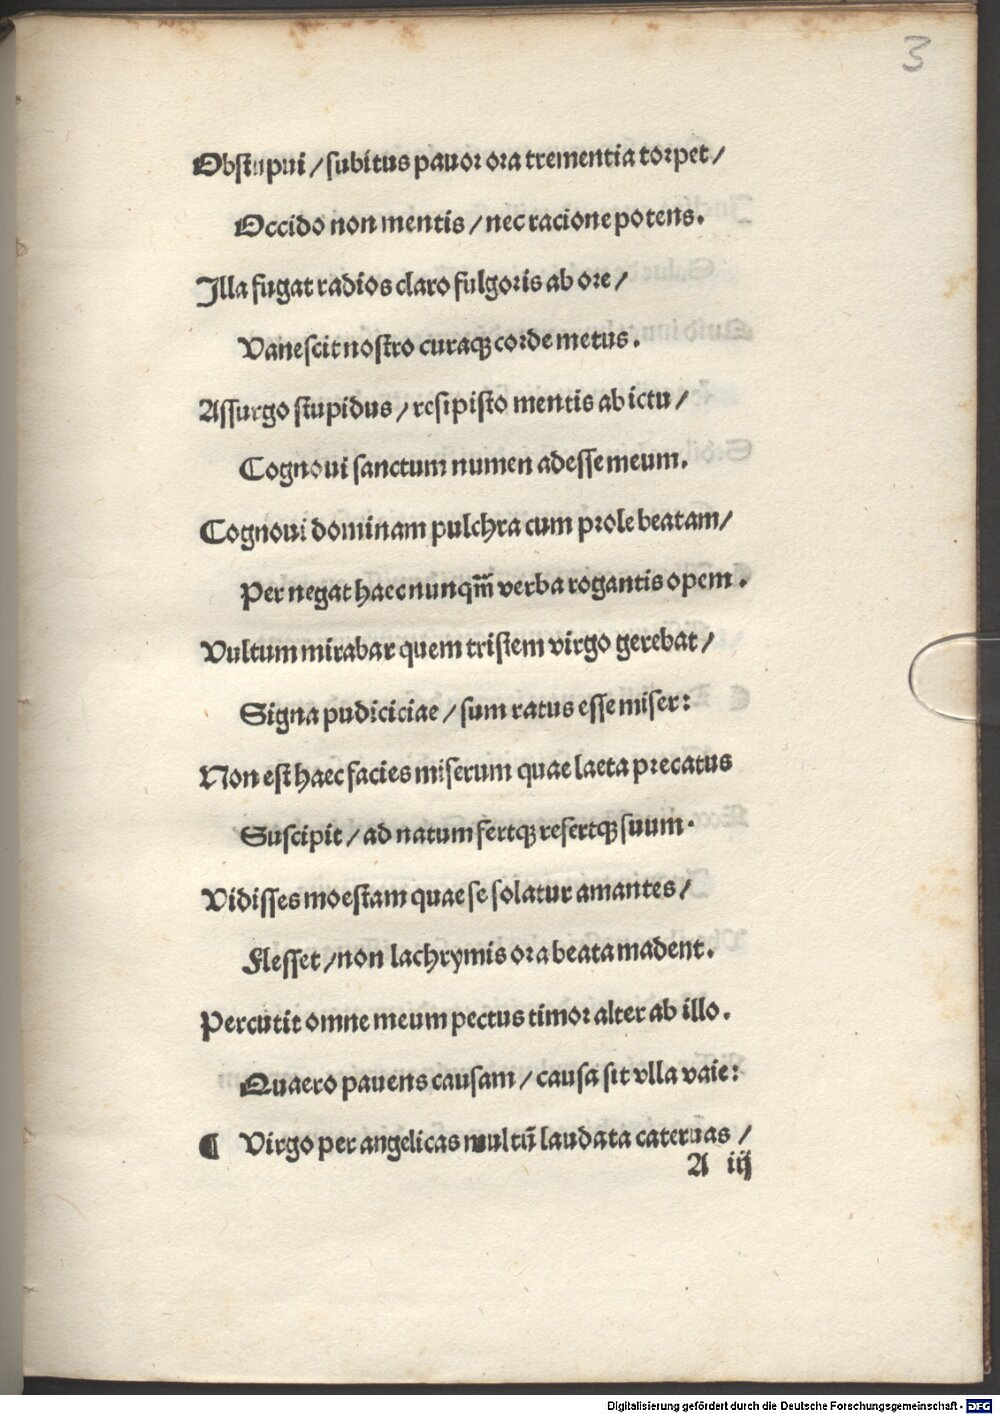 3
Obstupui / subitus pavor ora trementia torpet /
Occido non mentis / nec racione potens.
Illa fugat radios claro fulgoris ab ore /
Vanescit nostro curaqꝫ corde metus.
Assurgo stupidus / resipisto mentis ab ictu /
Cognoui sanctum numen adesse meum.
Cognoui dominam pulchra cum prole beatam /
Per negat haec nunqm̄ verba rogantis opem.
Vultum mirabar quem tristem virgo gerebat /
Signa pudiciciae / sum ratus esse miser:
Non est haec facies miserum quae laeta precatus
Suscipit / ad natum fertqꝫ refertqꝫ suum.
Vidisses moestam quae se solatur amantes /
Flesset / non lachrymis ora beata madent.
Percutit omne meum pectus timor alter ab illo.
Quaero pauens causam / causa sit vlla vaie:
¶ Virgo per angelicas multū laudata cateruas /
A iij
Digitalisierung gefördert durch die Deutsche Forschungsgemeinschaft - DFG